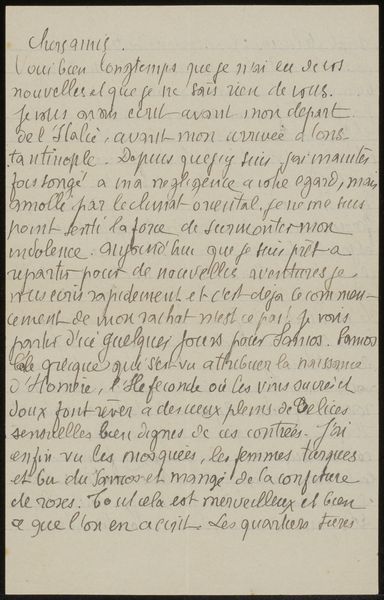 Chers amis.
Voici bien longtemps que je n'ai eu de vos
nouvelles et que je ne sais rien de vous.
Je vous avais écrit avant mon départ
de l'Italie, avant mon arrivée à Cons
tantinople. Depuis que j'y suis j'ai maintes
fois songé à ma négligence à votre égard, mais
amolli par le climat oriental, je ne me suis
point senti la force de surmonter mon
indolence. Aujourd'hui que je suis prêt à
repartir pour de nouvelles aventures je
vous écris rapidement et c'est déjà le commen-
cement de mon rachat n'est ce pas! Je vais
partir d'ici quelques jours pour Samos. Samos
île grecque qui s'est vu attribuer la naissance
d'Homère, l'île féconde où les vins sucrés et
doux font rêver à des cieux pleins de délices
sensuelles bien dignes de ces contrées. J'ai
enfin vu les mosquées, les femmes turques
et bu du Samos et mangé de la confiture
de roses. Tout cela est merveilleux et bien
ce que l'on en a écrit. Les quartiers